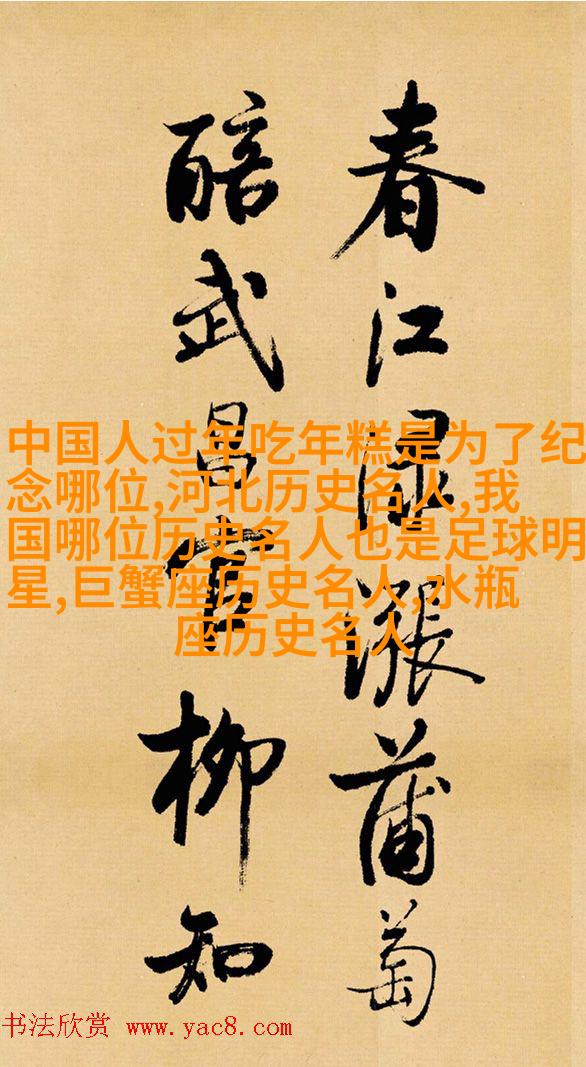 春江渌漲蒲萄
醅武昌官柳知
中国人过年吃年糕是为了纪
念哪位,河北历史名人,我
国哪位历史名人也是足球明
星,巨蟹座历史名人,水瓶
座历史名人
书法欣赏 www.yac8.com